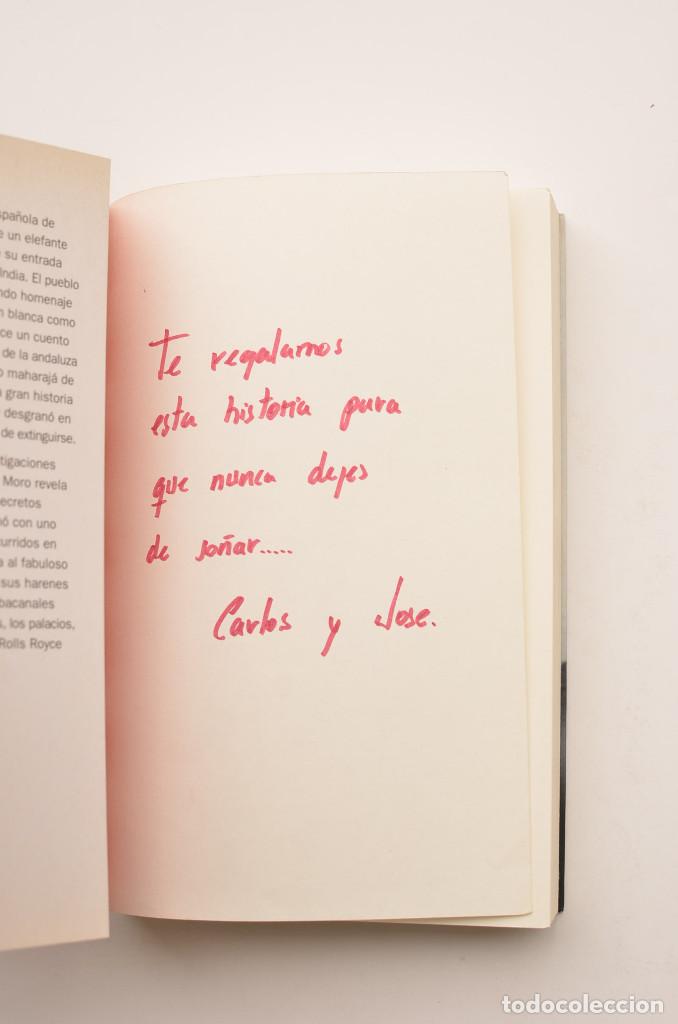 pañola de
e un elefante
su entrada
India. El pueblo
ndo homenaje
n blanca como
ce un cuento
de la andaluza
o maharajá de
gran historia
desgranó en
de extinguirse.
tigaciones
Moro revela
ecretos
ó con uno
urridos en
a al fabuloso
sus harenes
bacanales
s, los palacios,
Rolls Royce
Te regalamos
esta historia para
que nunca dejes
de soñar.....
Carlos y Jose.
todocoleccion